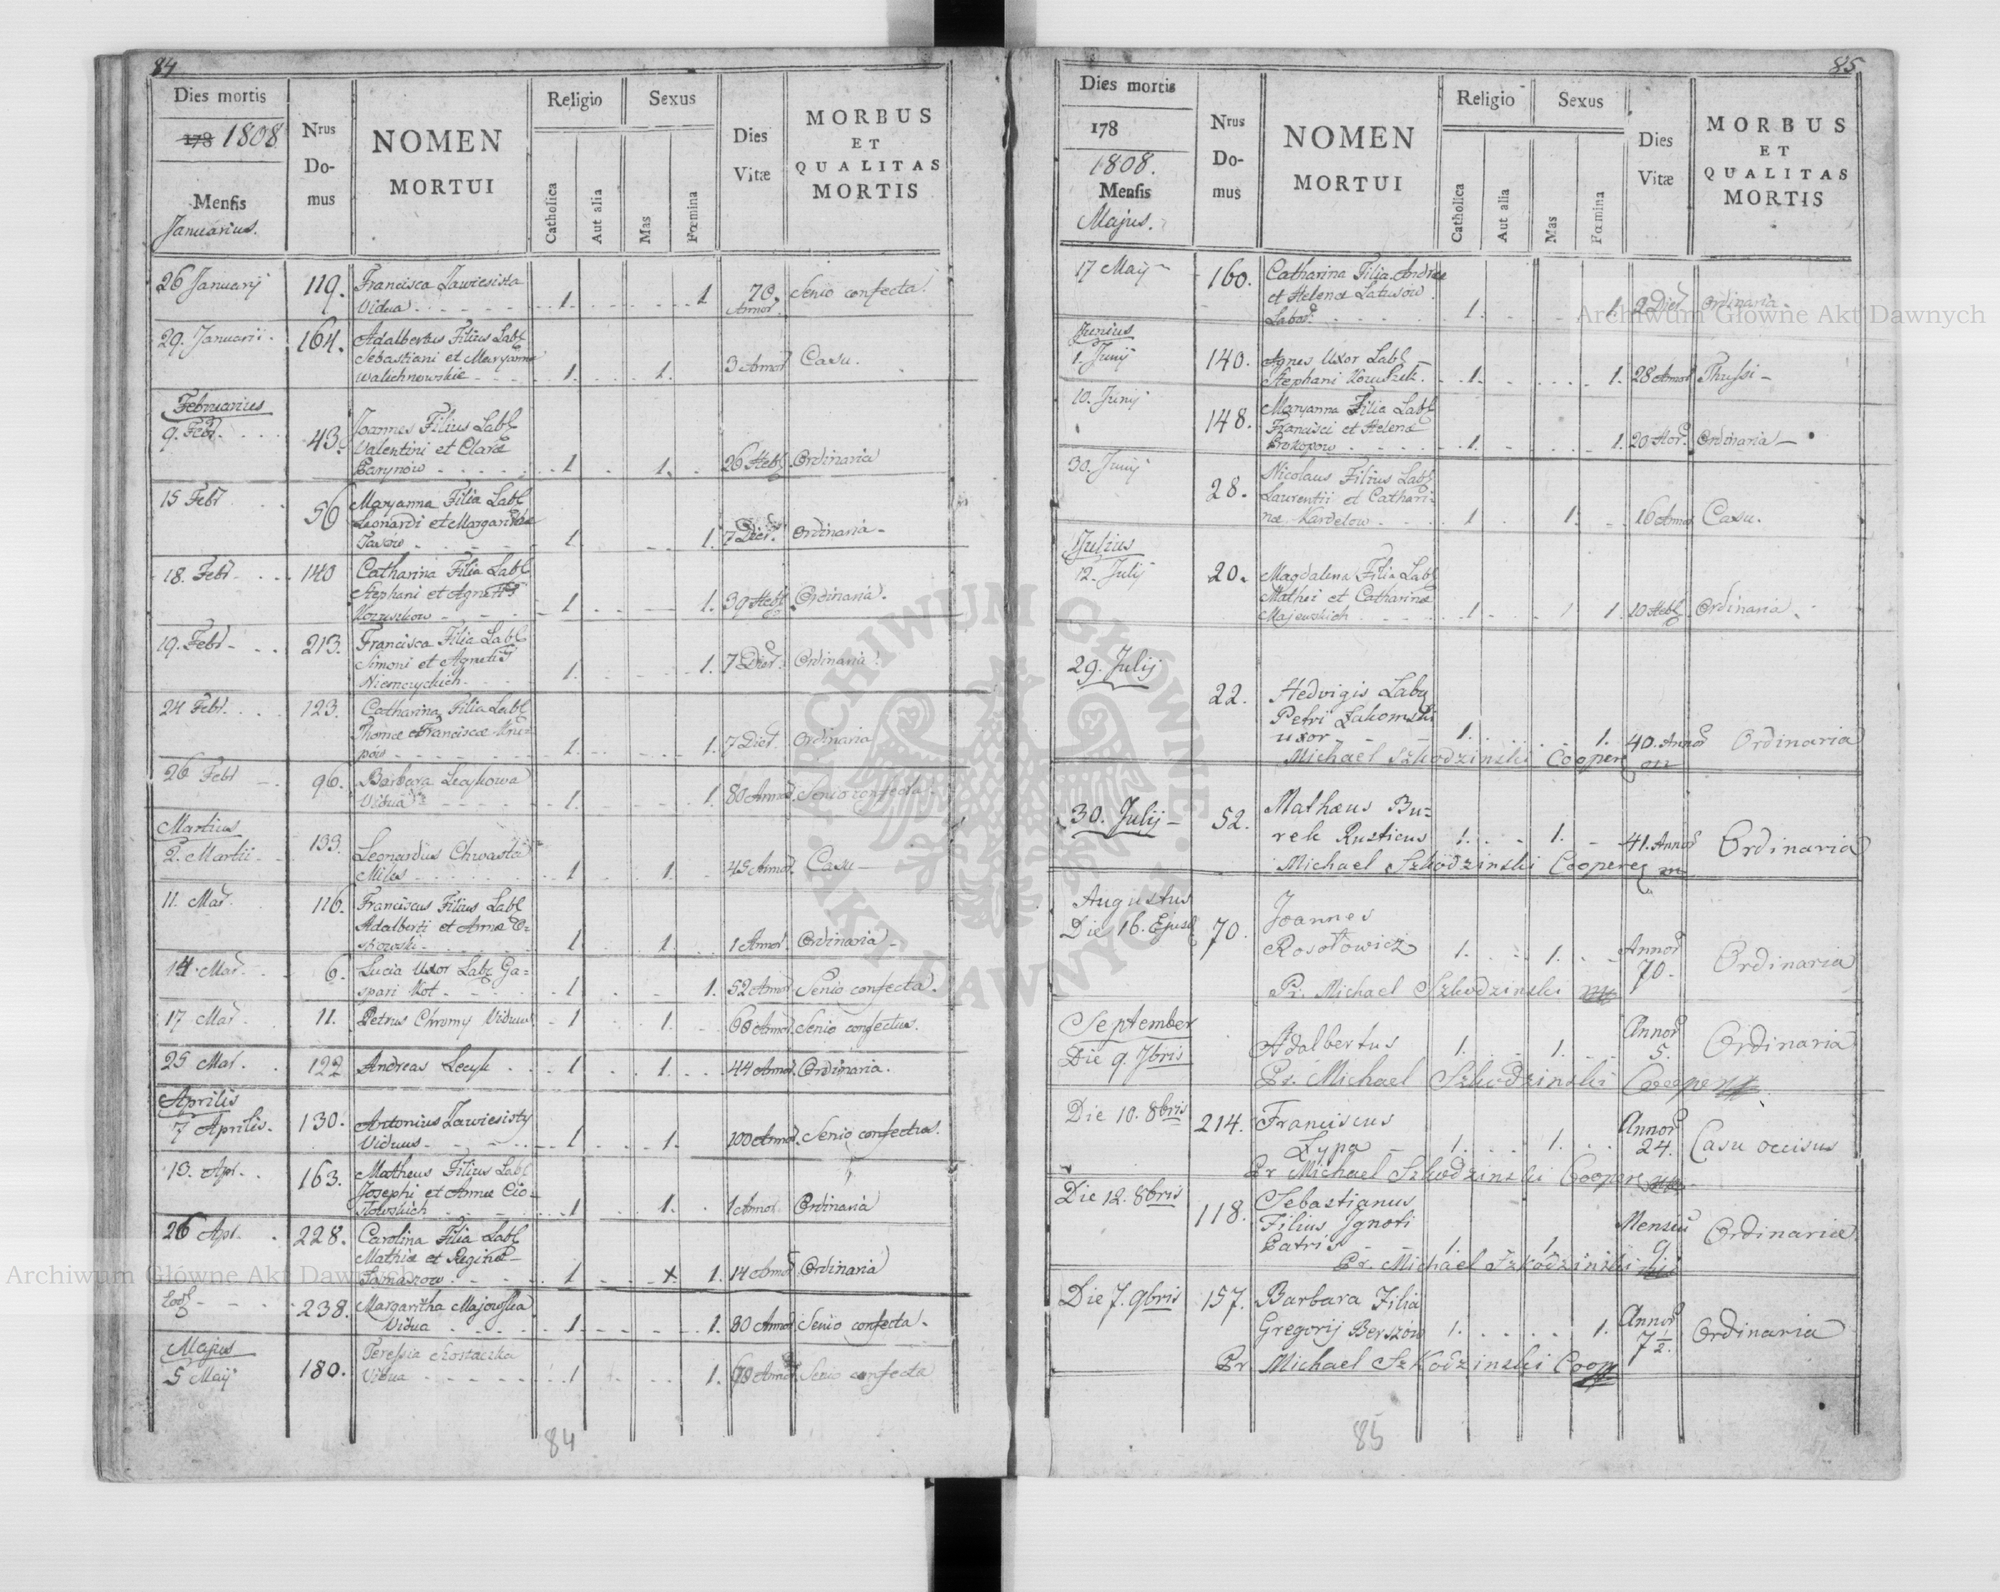 84
Dies mortis
178 1808
Mensis
Januarius.
Nrus
Do-
mus
NOMEN
MORTUI
Religio
Catholica
Aut alia
Sexus
Mas
Fœmina
Dies
Vitæ
MORBUS
ET
QUALITAS
MORTIS
26 Januarij 119. Francisca Zawiesista
Vidua 1 1 70. Annor. Senio confecta.
29. Januarii 164. Adalbertus Filius Lab.
Sebastiani et Maryanna
Walichnowskie 1. 1. 3 Annor Casu.
Februarius
9. Febr. 43. Joannes Filius Lab.
Valentini et Clara
1 1. 26 Hebd. Ordinaria
15 Febr 56 Maryanna Filia Lab.
Leonardi et Margarithæ
1. 1. 7 Dier. Ordinaria
18. Febr 140 Catharina Filia Lab.
Stephani et Agnetis
Kozuszkow 1 1. 39 Hebd. Ordinaria.
19. Febr 213. Francisca Filia Lab.
Simoni et Agnetis
Niemczyckich 1. 1. 7 Dier. Ordinaria.
24 Febr. 123. Catharina Filia Lab.
Thomæ et Franciscæ
1. 1. 7 Dier. Ordinaria
26 Febr 96. Barbara Lecykowa
Vidua 1. 1. 80 Annor. Senio confecta.
Martius
2. Martii 133. Leonardus Chwasta
Miles 1 1. 45 Annor. Casu
11. Mar. 116. Franciscus Filius Lab.
Adalberti et Annæ
1 1. 1 Annor. Ordinaria
14. Mar. 6. Lucia Uxor Lab. Ga-
spari Kot. 1 1. 52 Annor. Senio confecta.
17 Mar. 11. Petrus Chromy Viduus 1 1. 60 Annor. Senio confectus.
25 Mar. 122 Andreas Lecyk 1 1. 44 Annor. Ordinaria.
Aprilis
7 Aprilis. 130. Antonius Zawiesisty
Viduus. 1 1. 100 Annor. Senio confectus.
13. Apr. 163. Matheus Filius Lab.
Josephi et Annæ Cio-
1 1. 1 Annor. Ordinaria
26 Apr. 228. Carolina Filia Lab.
Mathiæ et Reginæ
Tomaszow 1 x 1. 14 Annor Ordinaria
238. Margaritha Majowska
Vidua 1. 1. 80 Annor. Senio confecta.
Majus
5 Maij 180. Teressia Szostaczka
Vidua 1 1. Annor. Senio confecta
84
85
Dies mortis
178
1808.
Mensis
Majus.
Nrus
Do-
mus
NOMEN
MORTUI
Religio
Catholica
Aut alia
Sexus
Mas
Fœmina
Dies
Vitæ
MORBUS
ET
QUALITAS
MORTIS
17 Maij 160. Catharina Filia Andreæ
et Helenæ Latusow
Labor. 1. 1. 2 Dier Ordinaria
Junius
1. Junij 140. Agnes Uxor Lab.
Stephani 1. 1. 28 Annor Thyssi
10. Junij 148. Maryanna Filia Lab.
Francisci et Helenæ
Prokopow 1. 1. 20 Hor. Ordinaria
30. Junij 28. Nicolaus Filius Lab.
Laurentii et Cathari-
næ Kardelow 1 1. 16 Annor Casu.
Julius
12. Julij 20. Magdalena Filia Lab.
Mathei et Catharinæ
Majewskich 1. 1. 10 Hebd. Ordinaria.
29. Julij 22. Hedvigis Labor.
Petri Lakomski
uxor 1. 1. 40. Annor Ordinaria
Michael Szkodzinski Cooper
30. Julij 52. Mathæus Bu-
rek Rusticus 1. 1. 41. Annor Ordinaria
Michael Szkodzinski Cooper
Augustus
Die 16. Ejusd 70. Joannes
Rosołowicz 1. 1. Annor 70. Ordinaria
Pr. Michael Szkodzinski
September
Die 9. 7bris Adalbertus 1. 1. Annor 5. Ordinaria
Pr. Michael Szkodzinski Cooper
Die 10. 8bris 214. Franciscus
Lypa 1. 1. Annor 24. Casu occisus
Pr Michael Szkodzinski Cooper
Die 12. 8bris 118. Sebastianus
Filius Ignoti
Patris 1. 1. Mensiu Ordinaria
Pr. Michael Szkodzinski
Die 7. 9bris 157. Barbara Filia
Gregorij Berszów 1. 1. Annor 7 1/2. Ordinaria
Pr Michael Szkodzinski Coop
85
Archiwum Główne Akt Dawnych
Archiwum Główne Akt Dawnych
ARCHIWUM GŁÓWNE AKT DAWNYCH